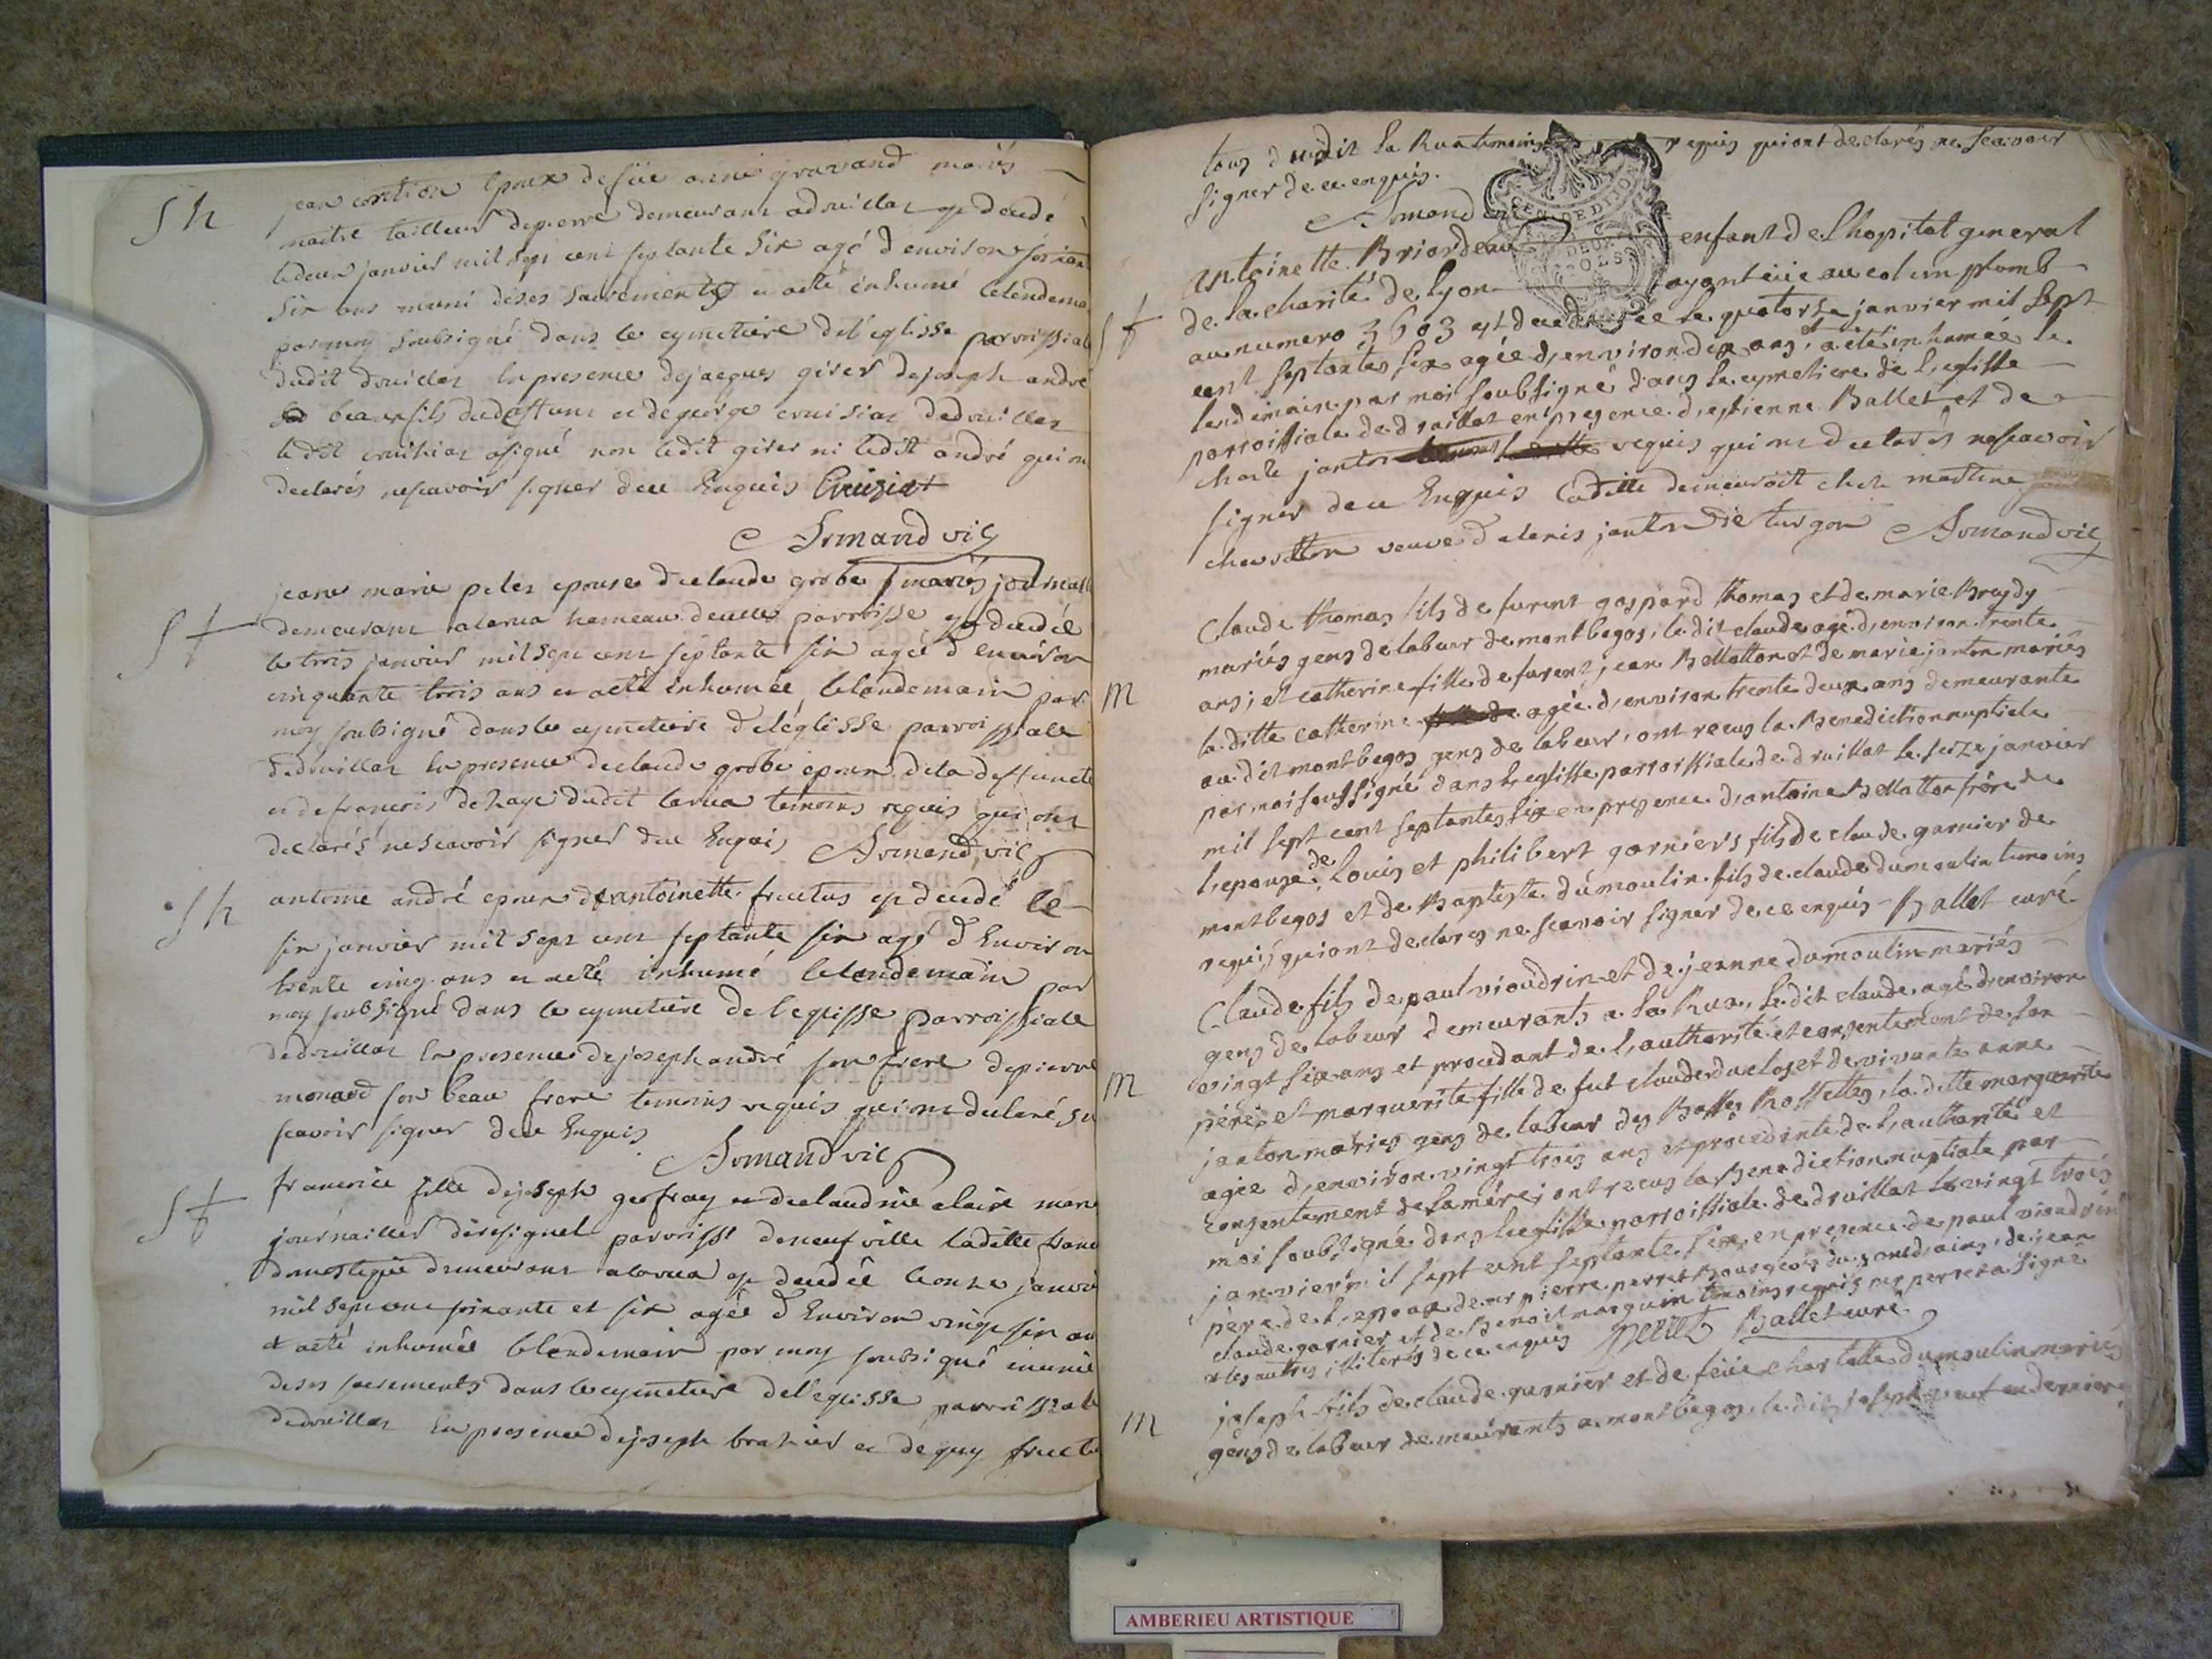 Sh
jean contion epoux de füe anne gravand mariés
maitre tailleur depierre demeurant adruillat est decedé
ledeux janvier mil sept cent septante six agé d'environ soixante
six ans muni deses sacrements et a eté inhumé lelendemain
parmoy soubsigné dans le cymetiere del'eglisse parroissiale
dudit druillat en presence dejacques giver dejoseph andré
beaux fils dudeffunt et degeorge cruisiat dedruillat
ledit cruisiat asigné non ledit giver ni ledit andré qui ont
declarés nescavoir signer dece Enquis Cruiziat
Armand vic
St
jeane marie peler epouse declaude grobe mariés journaliers
demeurant alarua hameau decette parroisse est decedée
le trois janvier mil sept cent septante six agée d'environ
cinquante trois ans et aeté inhumée lelendemain par
moy soubsigné dans le cymetiere del'églisse parroissiale
dedruillat en presence declaude grobe epoux dela deffuncte
et defrançois dehaye dudit larua temoins requis qui ont
declarés nescavoir signer dece Enquis Armand vic
Sh
antoine andré epoux de antoinette fructus est decedé le
six janvier mil sept cent septante six agé d'Environ
trente cinq ans et aeté inhumé lelendemain par
moy soubsigné dans le cymetiere de l'eglisse parroissiale
dedruillat en presence dejoseph andré son frere depierre
monard son beau frere temoins requis qui ont declaré
scavoir signer dece Enquis
Armand vic
St
françoise fille dejoseph geofray et declaudine claire mariés
journaillier deresignel parroisse deneufville ladette
domestique demeurant alarua est decedée leonze janvier
mil sept cent soixante et six agée d'Environ vingt six ans
et aeté inhumée lelendemain par moy soubsigné munie
deses sacrements dans le cymetiere del'eglisse parroissiale
dedruillat en presence dejoseph brahier et de guy fructus
tous dudit la Rua temoins requis qui ont declarés ne scavoir
signer de ce enquis.
Armand vic
GEN. DE DIJON
St
antoinette Briordeau enfant de l'hopital general
de la charité de lyon ayant eüe au col un plomb
au numero 3603 est decedée le quatorze janvier mil sept
cent septantes six agée d'environ dix ans, et a eté inhumée le
lendemain par moi soubsigné dans le cymetiere de l'eglisse
parroissiale de druillat en presence d'estienne Ballet et de
charle janton requis qui ont declarés nescavoir
signer dece Enquis laditte demeuroit chez martine
chevrotton veuve d'alexis janton de turgon Armand vic
m
Claude thomas fils de furent gaspard thomas et de marie Brejdy
mariés gens de labeur de montbegos, le dit claude agé d'environ trente
ans; et catherine fille de furent jean Bellatton et de marie janton mariés
la ditte catherine agée d'environ trente deux ans demeurante
au dit montbegos gens de labeur, ont reçus la Benediction nuptiale
par moi soussigné dans l'eglisse parroissiale de druillat le seize janvier
mil sept cent septantes six en presence d'antoine Bellatton frère de
l'epouse, de Louis et philibert garniers fils de claude garnier de
montbegos et de Baptiste dumoulin fils de claude dumoulin temoins
requis qui ont declarés ne scavoir signer de ce enquis - Ballet curé
m
Claude fils de paul vioudrin et de jeanne dumoulin mariés
gens de labeur demeurants a la Rua, le dit claude agé d'environ
vingt six ans et procedant de l'authorité et consentement de son
père; et marguerite fille de fut claude duclos et de vivante anne
janton mariés gens de labeur des Basses Rossettes, la ditte marguerite
agée d'environ vingt trois ans et procedante de l'authorité et
consentement de sa mére; ont reçus la Benediction nuptiale par
moi soubsigné dans l'eglisse parroissiale de druillat le vingt trois
janvier mil sept cent septante six, en presence de paul vioudrin
père de l'epoux, de mr pierre perret Bourgeois du pontdains, de jean
claude garnier et de Benoit marguin temoins requis mr perret a signé
et les autres illiterés de ce enquis Perret Ballet curé
m
joseph fils de claude garnier et de feüe charlotte dumoulin mariés
gens de labeur demeurants a montbegos, le dit joseph veuf en derniere
AMBERIEU ARTISTIQUE